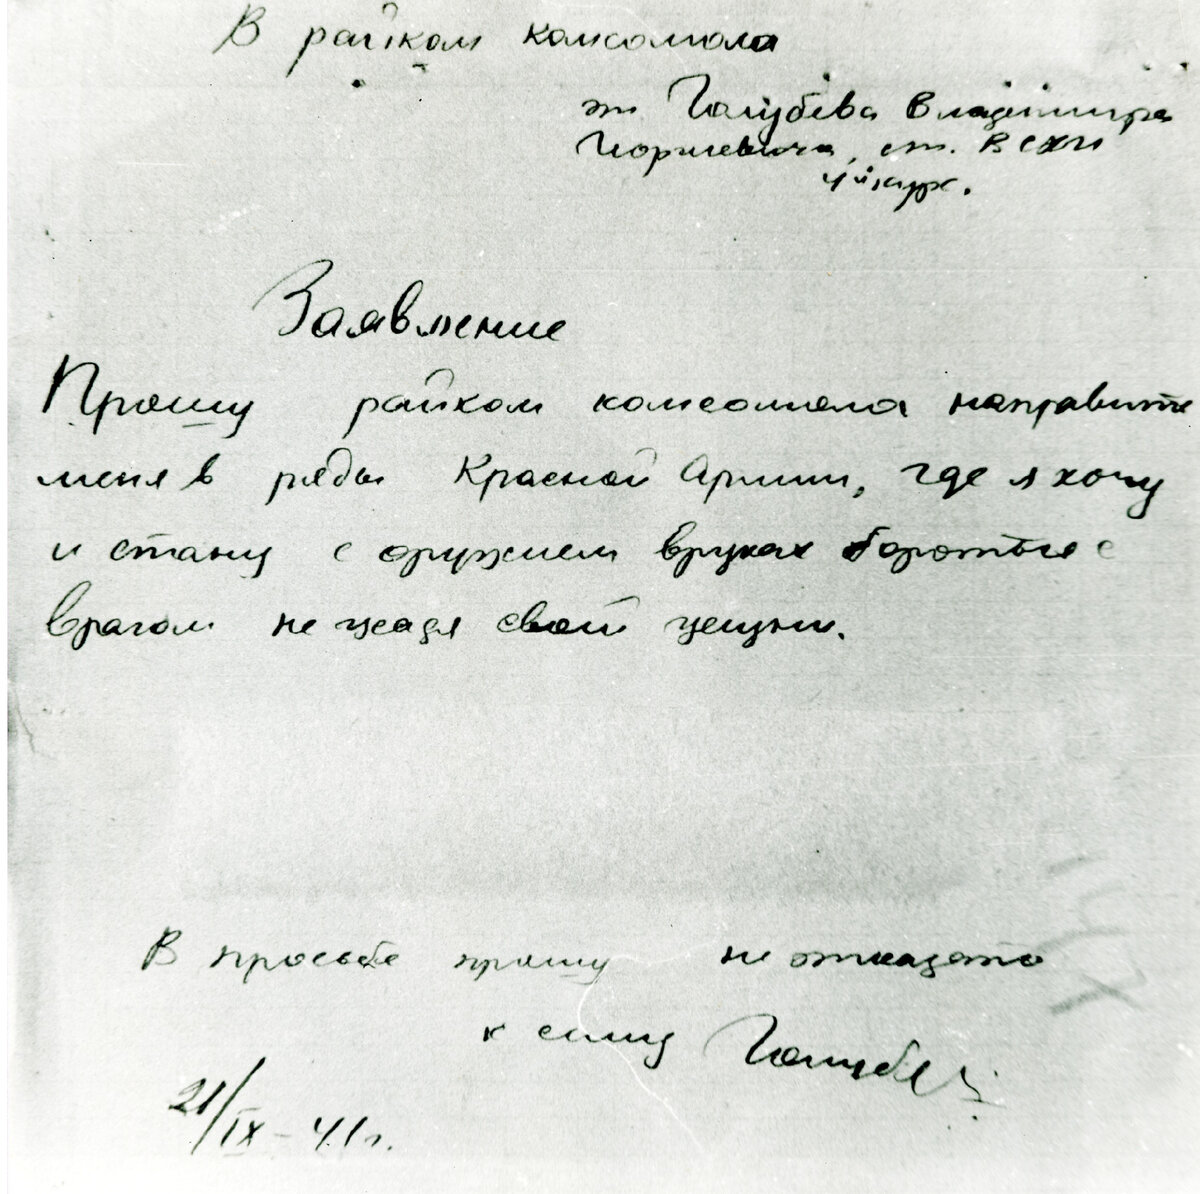 В райком комсомола
от Голубева Владимира
Георгиевича, ст. ВСХИ
4й курс.
Заявление
Прошу райком комсомола направить
меня в ряды Красной Армии, где я хочу
и стану с оружием в руках бороться с
врагом не щадя своей жизни.
В просьбе прошу не отказать
к сему Голубев
21/IX-41г.